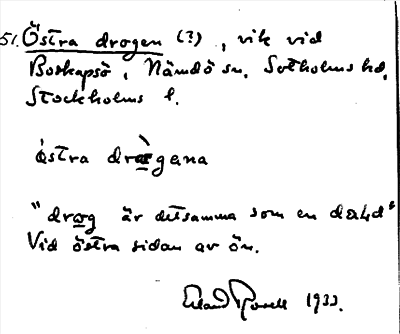 51. Östra drogen (?), vik vid
Boskapsö, Nämdö sn. Sotholms hd.
Stockholms l.
östra drægena
"dræg är detsamma som en dæld"
Vid östra sidan av ön.
Erland Rosell 1933.